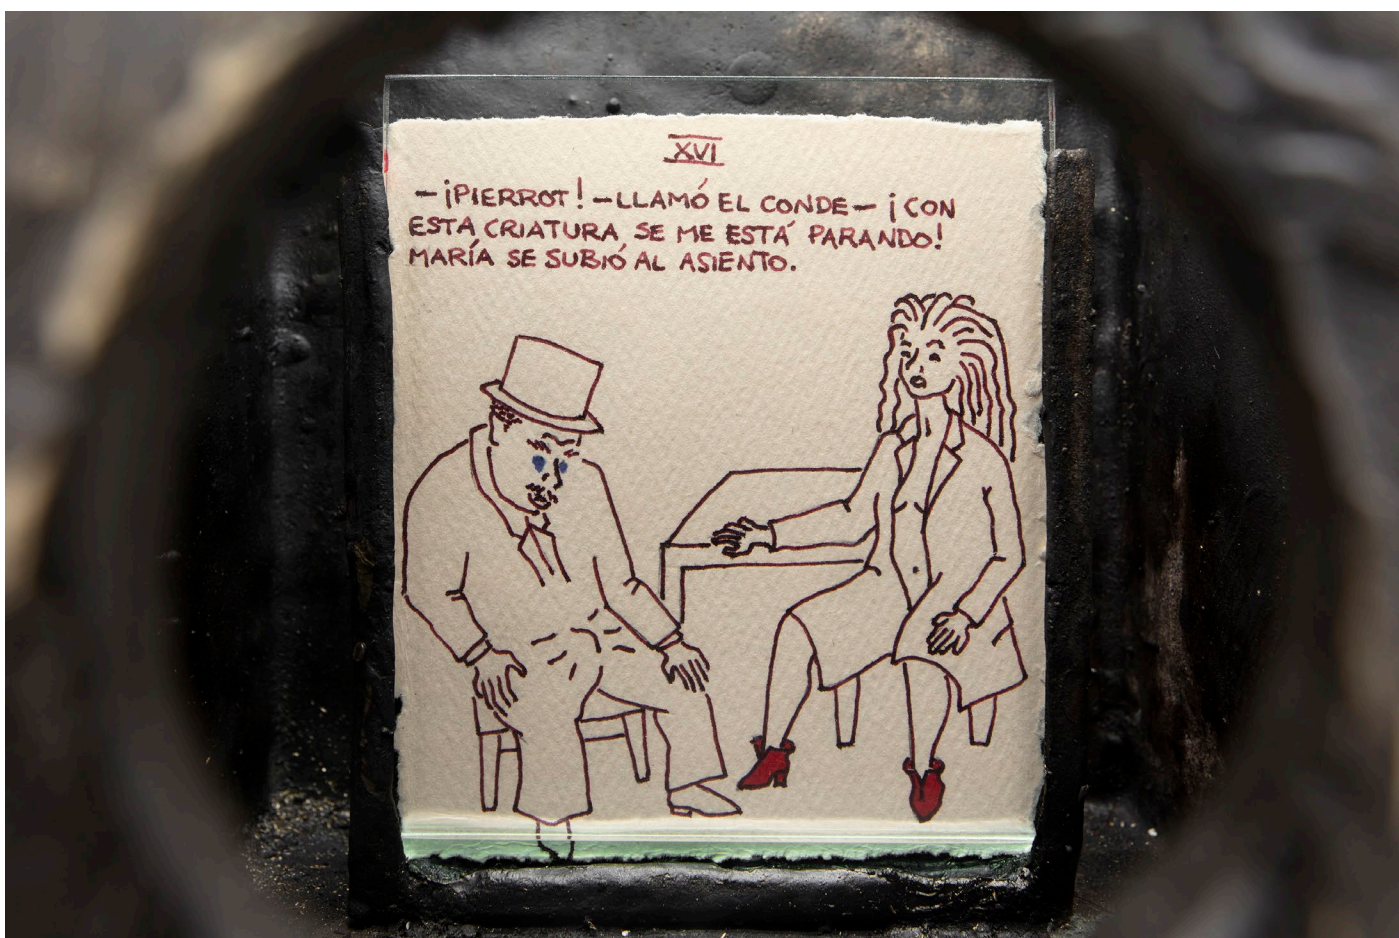 XVI
—¡PIERROT! —LLAMÓ EL CONDE— ¡CON
ESTA CRIATURA SE ME ESTÁ PARANDO!
MARÍA SE SUBIÓ AL ASIENTO.